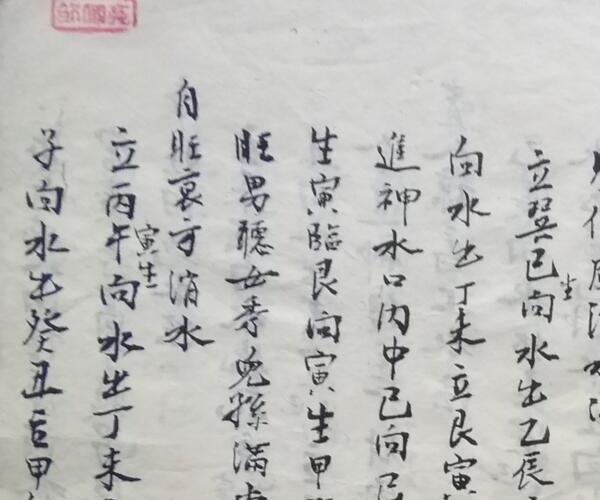 立巽巳向水出乙辰
生
向水出丁未立艮寅
進神水口内中巳向巳
生寅臨艮向寅生甲
旺男聰女秀兒孫滿
自旺衰方消水
立丙午向水出丁未
寅生
子向水出癸丑甲